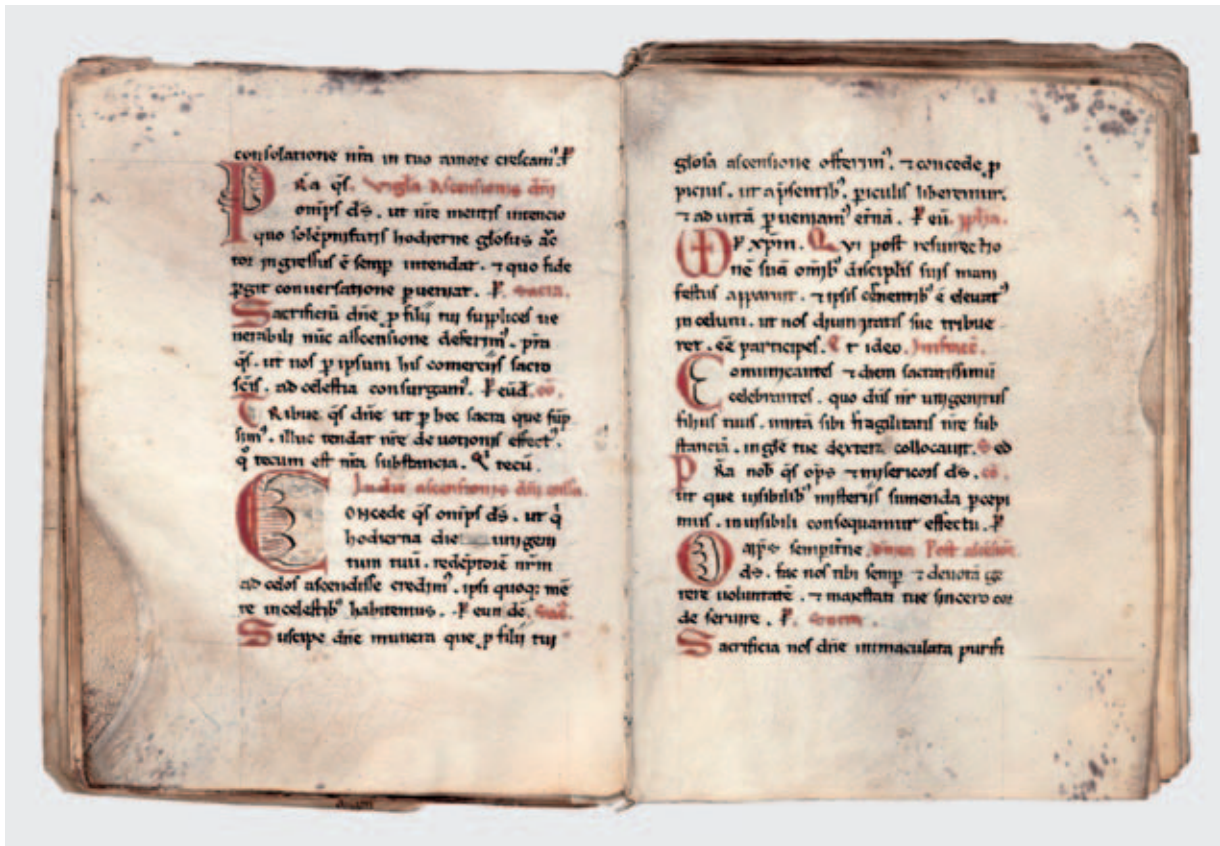 consolatione nr̄a in tuo amore crescamꝰ. ꝑ
PR̄a q̄s. Vigl̄a Ascensionis dn̄i
om̄ips d̄s. ut nr̄e mentis intencio
quo solēpnitatis hodierne glosus āc
tor ingressus ē semꝑ intendat. ⁊ quo fide
ꝑgit conuersatione ꝑueniat. P̄.
Sacrificiū dn̄e ꝓ filij tui supplices ue
nerabili nūc assensione deferimꝰ. p̄ta
q̄s. ut nos ꝑ ipsum his comercijs sacro
sc̄īs. ad celestia consurgamꝰ. P̄ eūd. cō.
TRibue q̄s dn̄e ut ꝑ hec sacra que sūp
simꝰ. illuc tendat nr̄e deuotionis effectꝰ.
q̊ tecum est nr̄a substancia. Q̇ tecū.
In die ascensionis dn̄i
Concede q̄s om̄ips d̄s. ut q̇
hodierna die unigeni
tum tuū. redēptorē nr̄m
ad celos ascendisse credimꝰ. ipsi quoq; mē
te in celestibꝰ habitemus. P̄ eun dē.
Suscipe dn̄e munera que ꝓ filij tui
glosa ascensione offerimꝰ. ⁊ concede ꝓ
picius. ut a p̄sentibꝰ. ꝑiculis liberemur.
⁊ ad uitā ꝑueniamꝰ et̄nā. P̄ eū.
P̄ xp̄m. Qui post resurrectio
nē suā om̄ibꝰ discipl̄is suis mani
festus apparuit. ⁊ ipsis cērnentibꝰ ē eleuatꝰ
in celum. ut nos diuinitatis sue tribue
ret. eē participes. Et ideo.
Comunicantes ⁊ diem sacratissimū
celebrantes. quo dn̄s nr̄ unigenitus
filius tuus. unitā sibi fragilitatis nr̄e sub
stanciā. in glīe tue dextera collocauit. Sed
PR̄a nob̄ q̄s op̄s ⁊ misericors d̄s. cō.
ut que uisibilibꝰ misterijs sumenda ꝑcepi
mus. inuisibili consequamur effectu. P̄
Om̄ip̄s sempit̄ne Post
d̄s. fac nos tibi semꝑ ⁊ deuotā ge
rere uoluntatē. ⁊ maiestati tue sincero cor
de seruire. P̄.
Sacrificia nos dn̄e inmaculata purifi